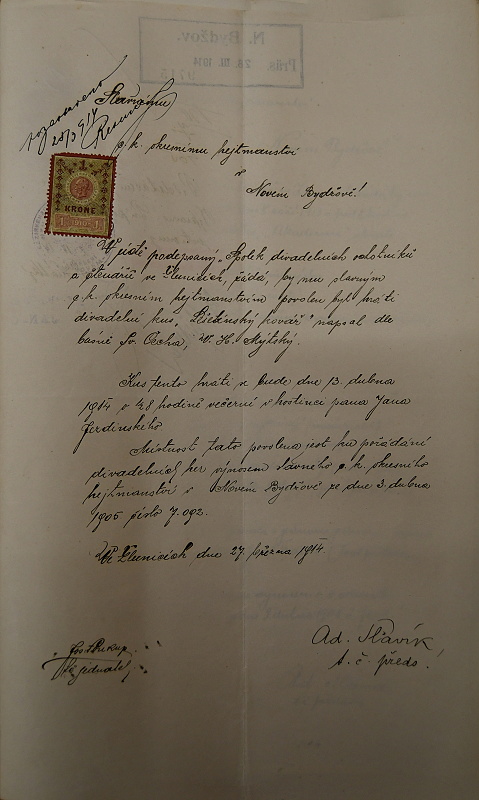 N. Bydžov.
Präs. 28. III. 1914
pozastaveno
28/3 914
Slavnému
c. k. okresnímu hejtmanství
v
Novém Bydžově!
1
KRONE
V úctě podepsaný „Spolek divadelních ochotníků
a čtenářů ve Žlunicích“, žádá, by mu slavným
c. k. okresním hejtmanstvím povolen byl hráti
divadelní kus „Lešetínský kovář“ napsal dle
básně Sv. Čecha, W. K. Mýtský.
Kus tento hráti se bude dne 13. dubna
1914 o ½8 hodině večerní v hostinci pana Jana
Ferdinského.
Místnost tato povolena jest ku pořádání
divadelních her výnosem slavného c. k. okresního
hejtmanství v Novém Bydžově ze dne 3. dubna
1905 číslo 7.092.
Ve Žlunicích dne 27. března 1914.
Jos. Prokop
jednatel
Ad. Slavík
t. č. předs.